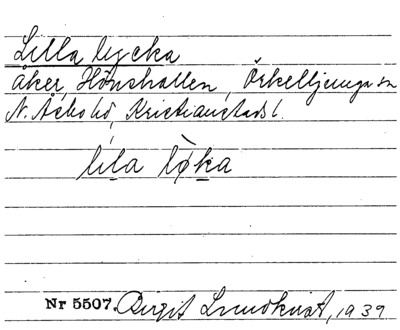 Lilla lycka
åker, Hönshallen, Örkelljunga sn
N. Åsbo hd, Kristianstads l.
lila løka
Nr 5507. Birgit Lundkvist, 1939